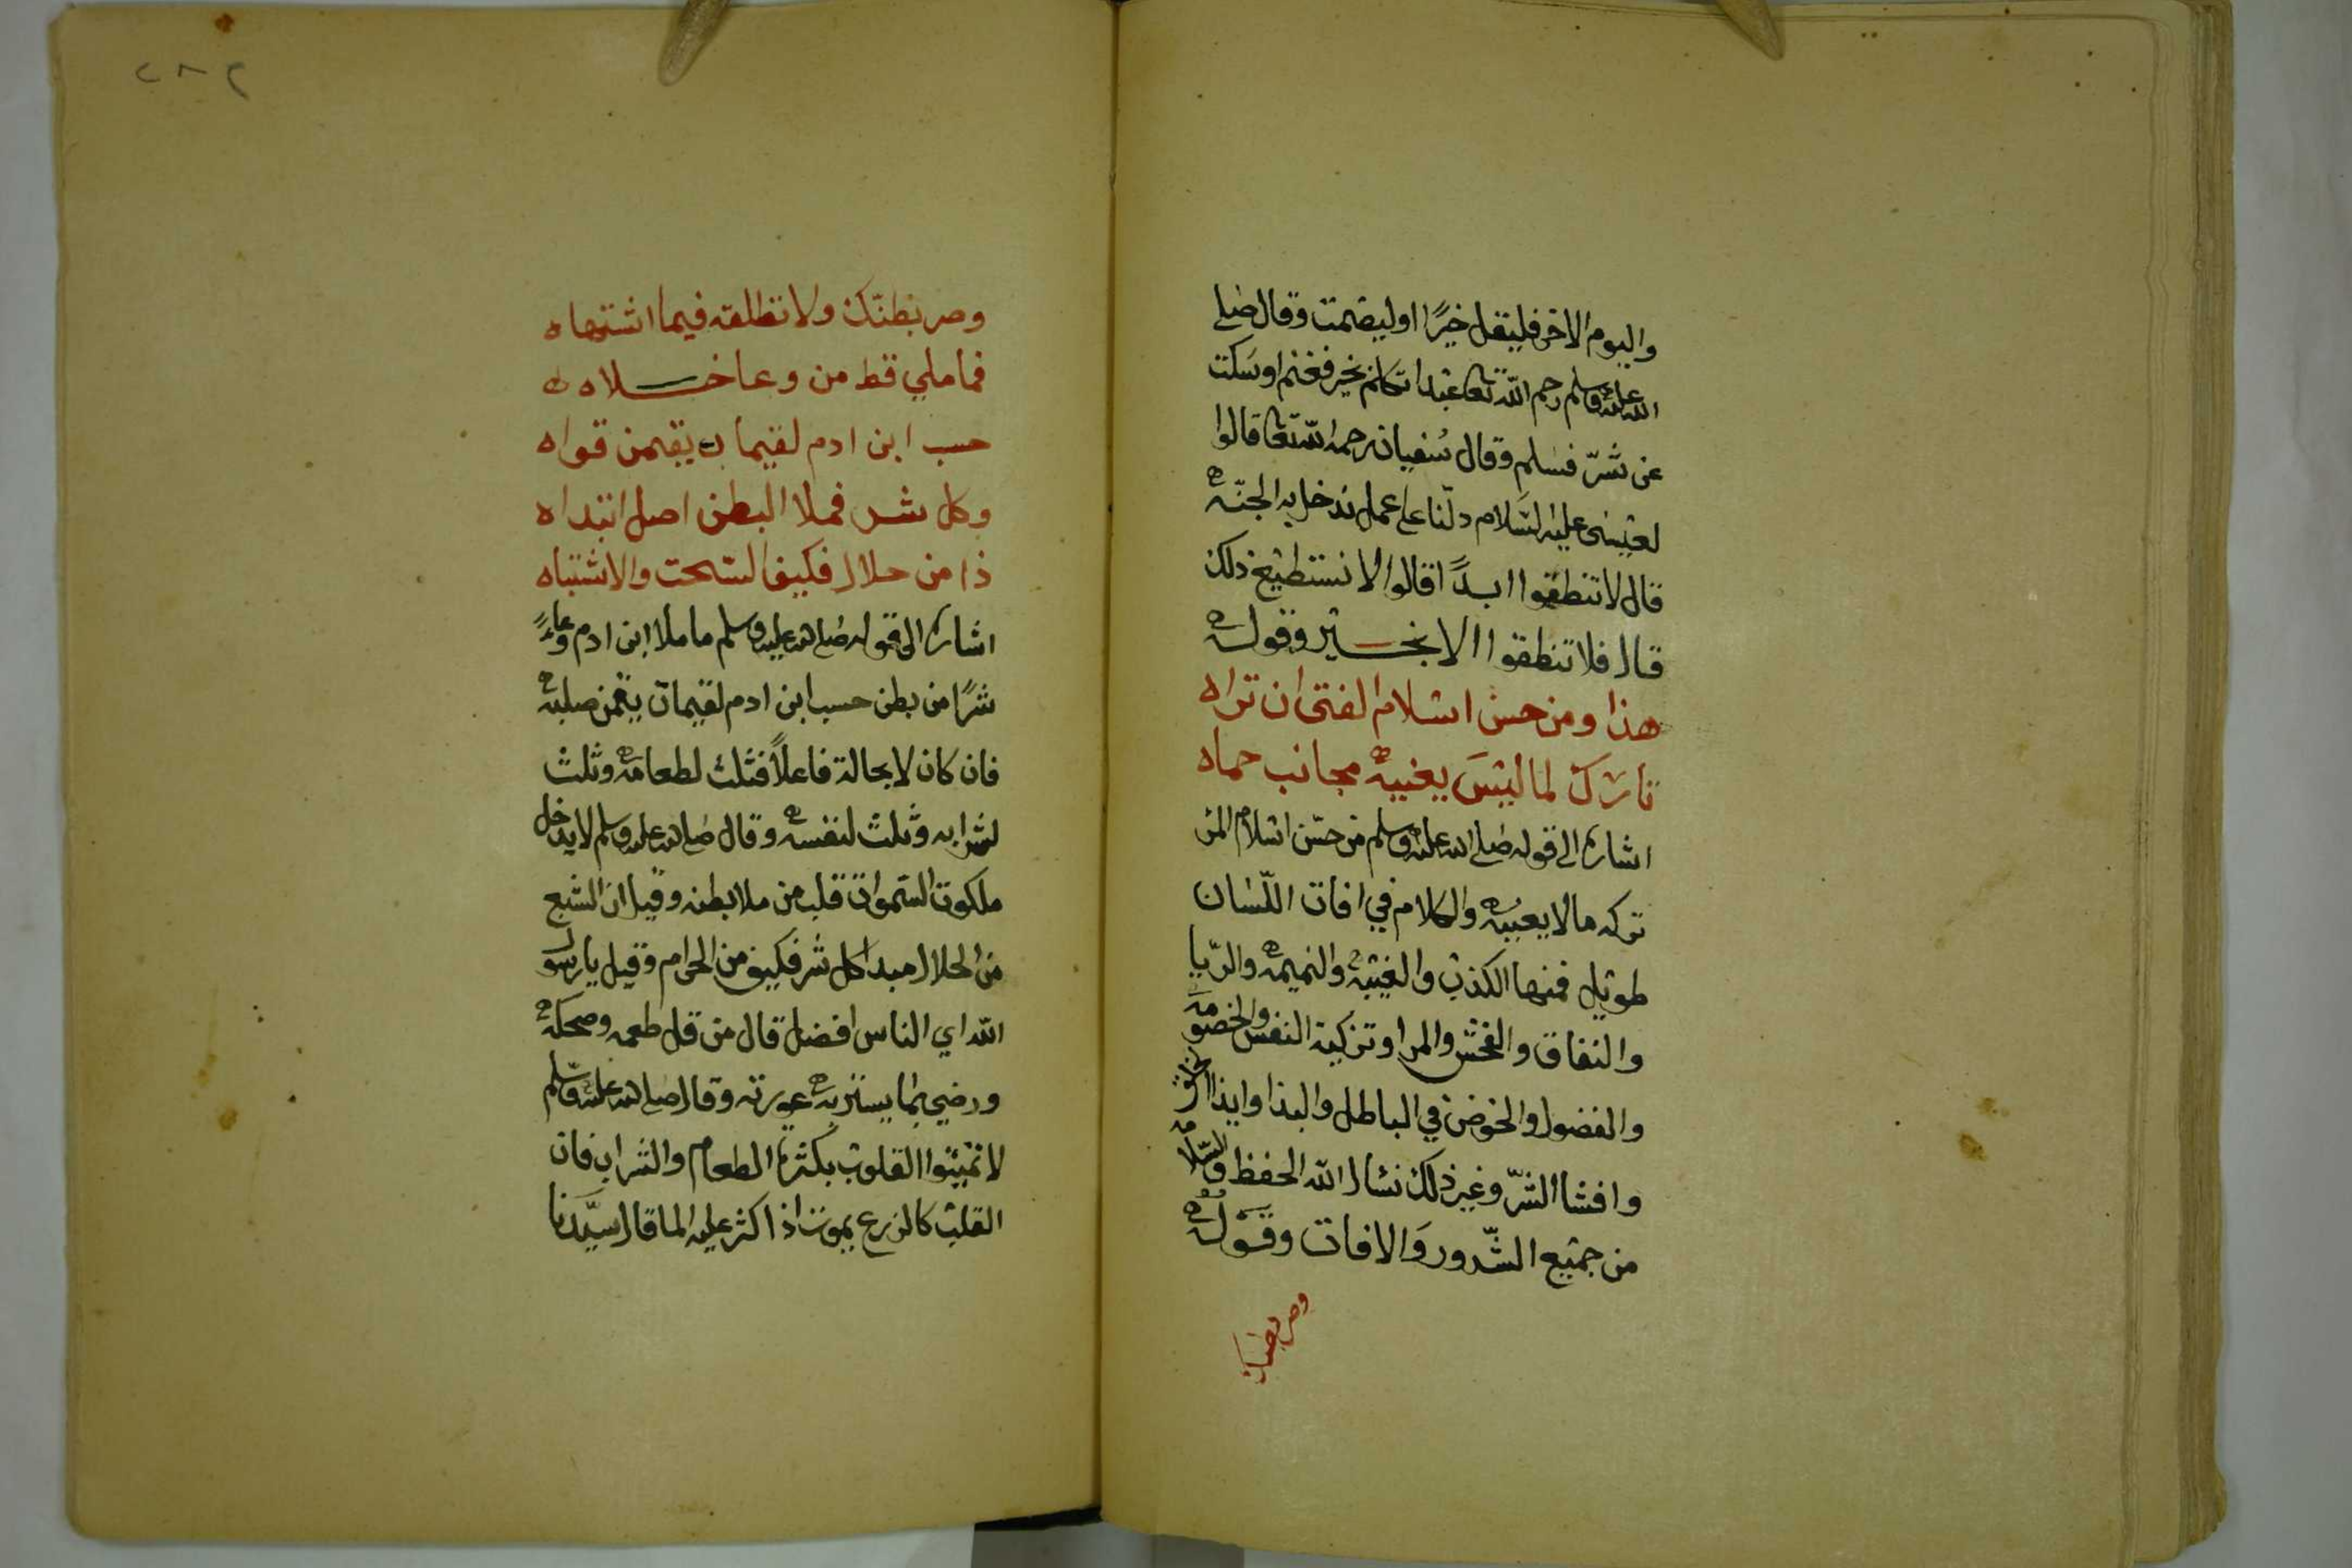 واليوم الاخر فليقل خيرًا او ليصمت وقال صلى
الله عليه وسلم رحم الله تعا عبدا تكلم بخير فغنم او سكت
عن شرّ فسلم وقال سفيان رحمه الله تعا قالوا
لعيسى عليه السلام دلّنا على عمل ندخل به الجنّة
قال لا تنطقوا ابدًا قالوا لا نستطيع ذلك
قال فلا تنطقوا الا بخير وقوله
هذا ومن حسن اسلام الفتى ان تراه
تارك لما ليس يعنيه مجانب حماه
اشارة الى قوله صلى الله عليه وسلم من حسن اسلام المر
تركه مالا يعنيه والكلام في افات اللّسان
طويل فمنها الكذب والغيبة والنميمة والرّيا
والنفاق والفحش والمرا وتزكية النفس والخصومة
والفضول والخوض في الباطل والبذا وايذا الخلق
وافشا السّرّ وغير ذلك نسال الله الحفظ والسّلامة
من جميع الشّرور والافات وقوله
وصر بطنك
٢٨٢
وصر بطنك ولا تطلقه فيما اشتهاه
فما ملي قط من وعا خلاه
حسب ابن ادم لقيمات يقمن قواه
وكل شر فملا البطن اصل ابتداه
ذا من حلال فكيف السحت والاشتباه
اشارة الى قوله صلى الله عليه وسلم ما ملا ابن ادم وعاءً
شرًا من بطن حسب ابن ادم لقيمات يقمن صلبه
فان كان لا محالة فاعلاً فثلث لطعامه وثلث
لشرابه وثلث لنفسه وقال صلى الله عليه وسلم لا يدخل
ملكوت السموات قلب من ملا بطنه وقيل ان الشبع
من الحلال مبدا كل شر فكيف من الحرام وقيل يا رسول
الله اي الناس افضل قال من قل طعمه وضحكه
ورضي بما يستر به عورته وقال صلى الله عليه وسلم
لا تميتوا القلوب بكثرة الطعام والشراب فان
القلب كالزرع يموت اذا اكثر عليه الما قال سيّدنا